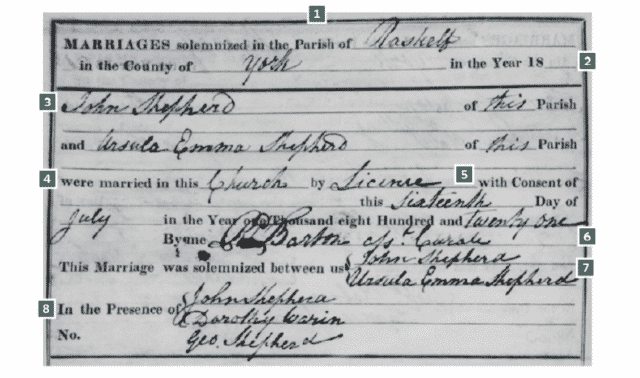 1
MARRIAGES solemnized in the Parish of Raskelf
in the County of York in the Year 18
2
3
John Shepherd of this Parish
and Ursula Emma Shepherd of this Parish
4
were married in this Church by Licence with Consent of
5
this sixteenth Day of
July in the Year one Thousand eight Hundred and twenty one
By me Barton Curate
6
This Marriage was solemnized between us John Shepherd
Ursula Emma Shepherd
7
8
In the Presence of John Shepherd
Dorothy Warin
No. Geo. Shepherd